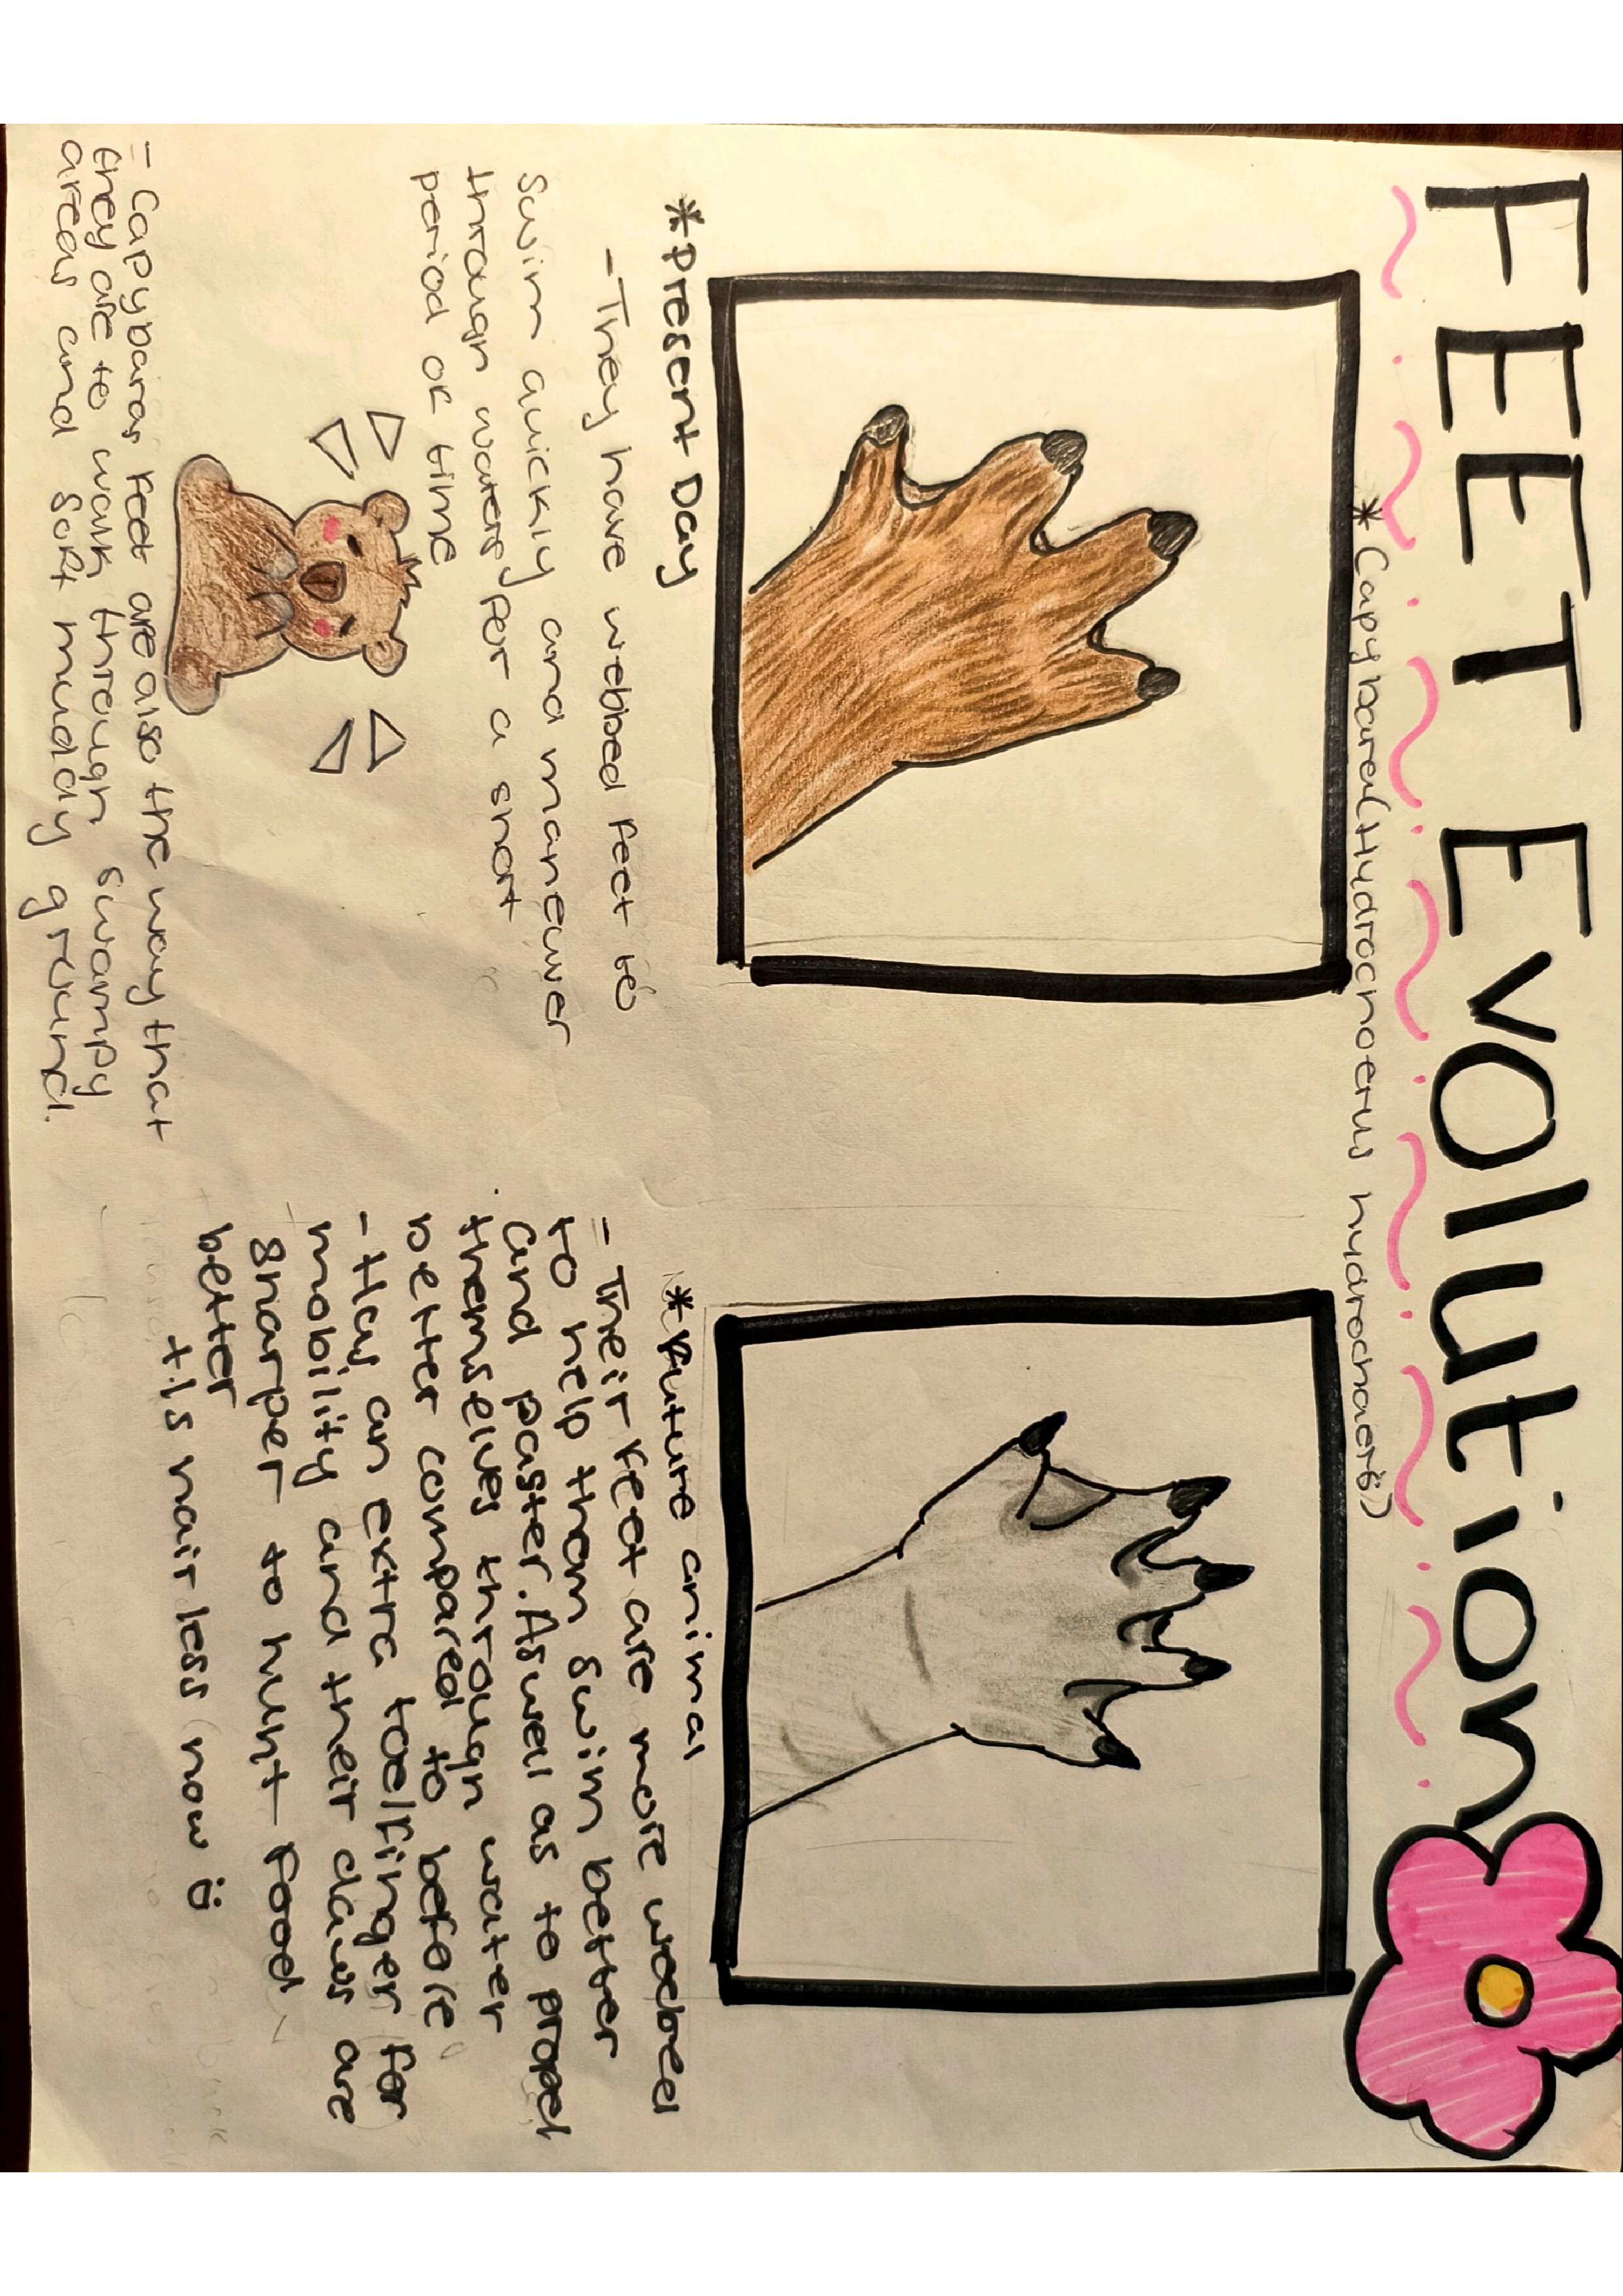 FEET Evolution
* Capybara (Hydrochoerus hydrochaeris)
*Present Day
- They have webbed feet to
swim quickly and maneuver
through waters for a short
period of time
- Capybaras feet are also the way that
they are to walk through swampy
areas and soft muddy ground.
*Future animal
- Their feet are more webbed
to help them swim better
and faster. Aswell as to propel
themselves through water
better compared to before
- Has an extra toe/finger for
mobility and their claws are
sharper to hunt food
better
+ Is hair less now